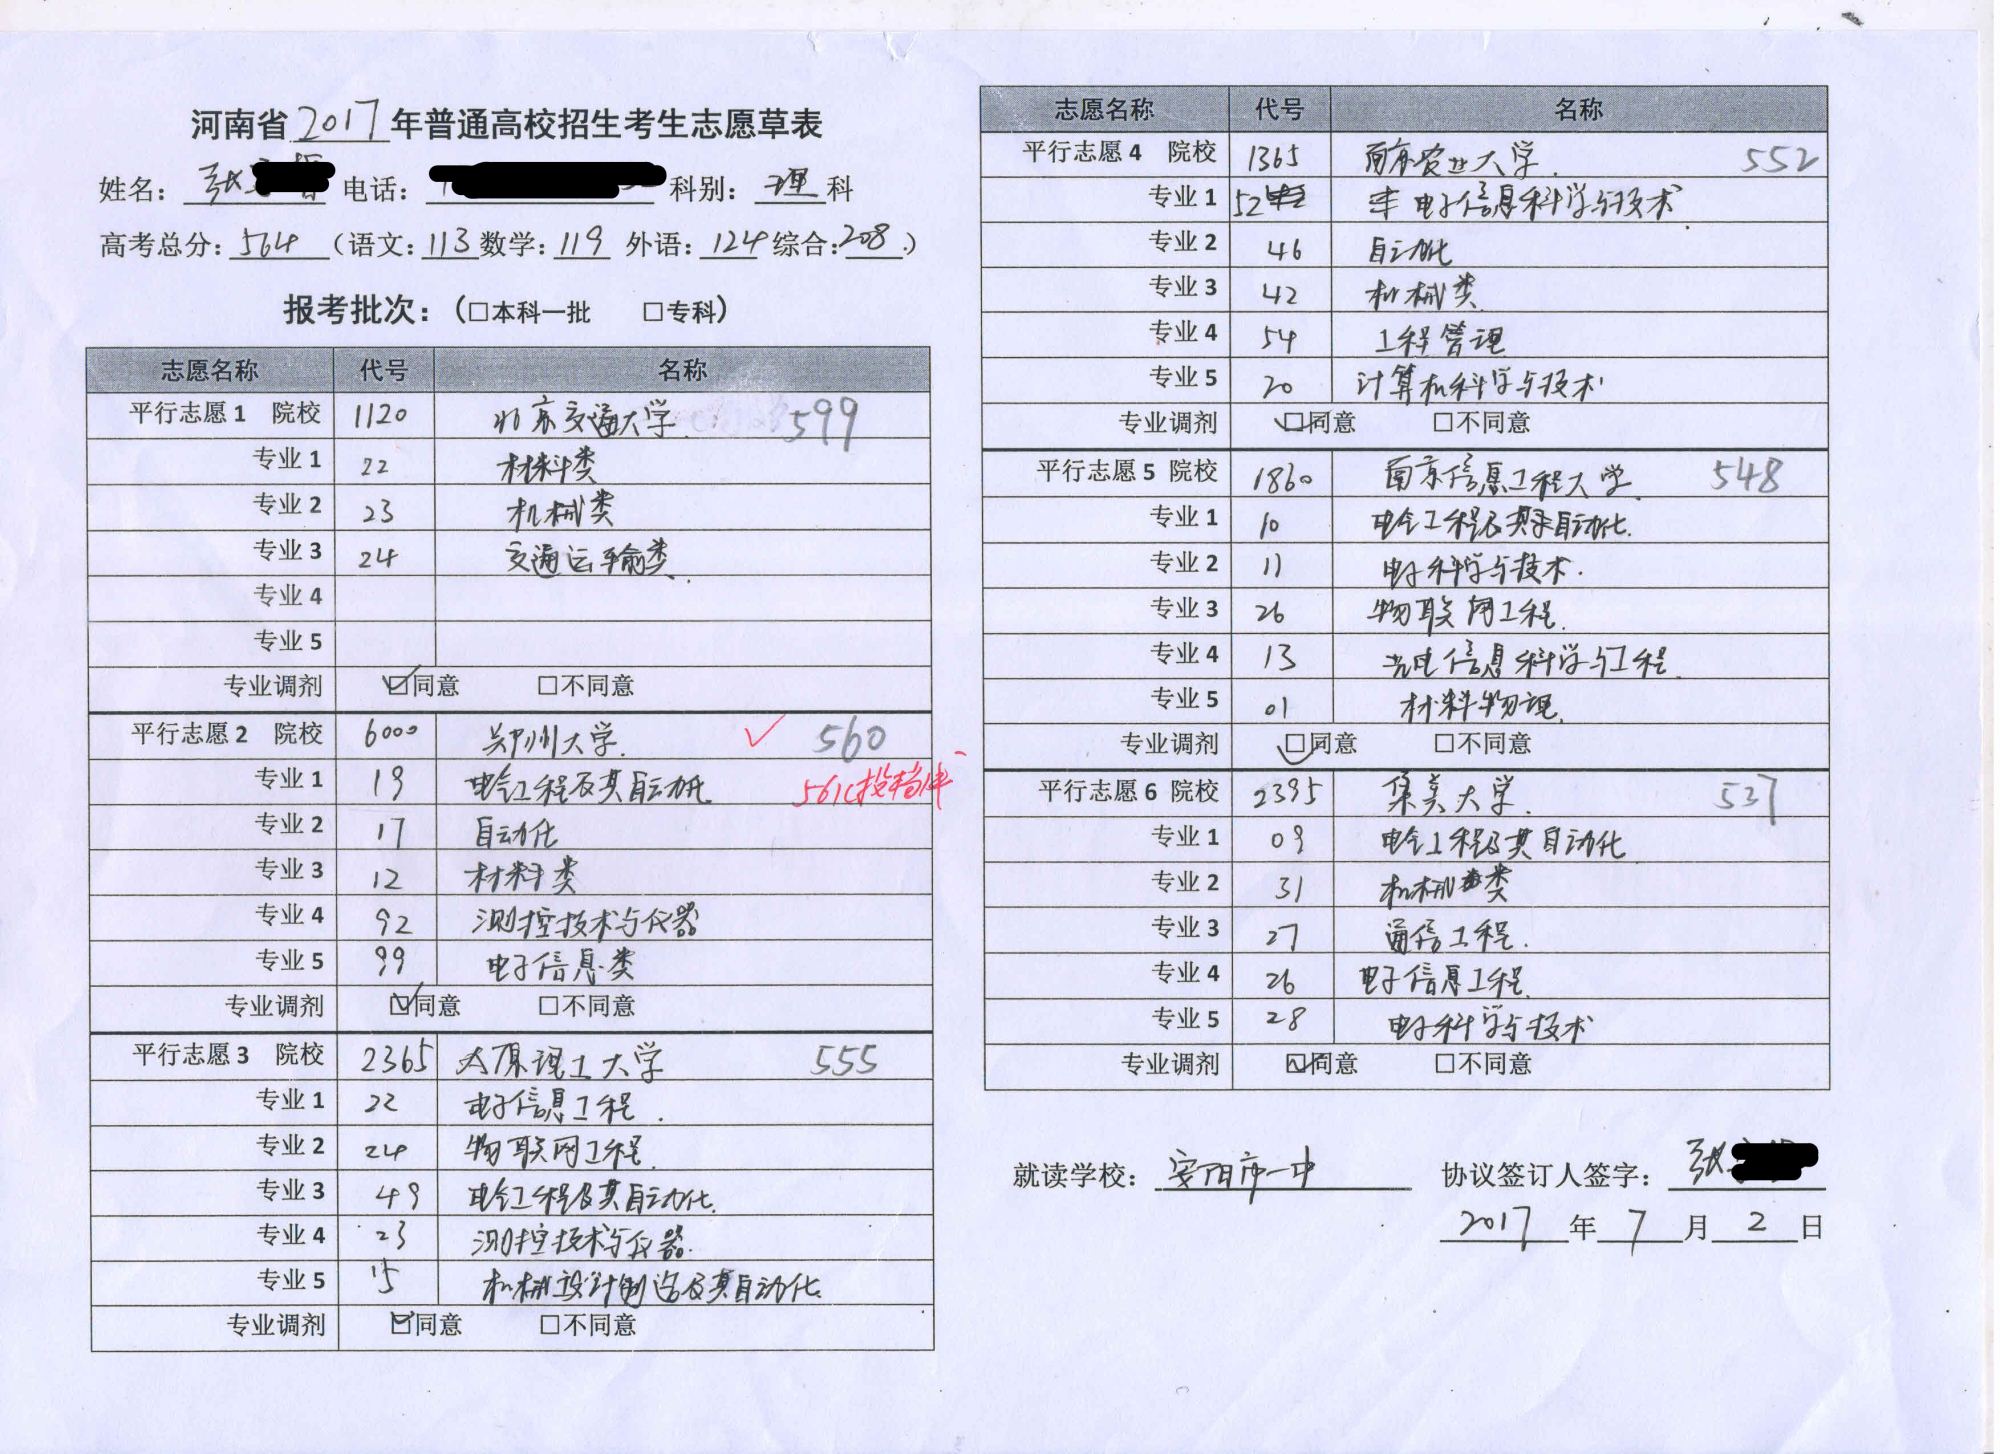 河南省2017年普通高校招生考生志愿草表
姓名：张 电话： 科别：理科
高考总分：564（语文：113 数学：119 外语：124 综合：208.）
报考批次：（□本科一批 □专科）
志愿名称 代号 名称
平行志愿1 院校 1120 北京交通大学. 599
专业1 22 材料类
专业2 23 机械类
专业3 24 交通运输类.
专业4
专业5
专业调剂 ☑同意 □不同意
平行志愿2 院校 6000 郑州大学. ✓ 560
专业1 19 电气工程及其自动化 561投档线
专业2 17 自动化
专业3 12 材料类
专业4 92 测控技术与仪器
专业5 99 电子信息类
专业调剂 ☑同意 □不同意
平行志愿3 院校 2365 太原理工大学 555
专业1 22 电子信息工程.
专业2 24 物联网工程.
专业3 49 电气工程及其自动化.
专业4 23 测控技术与仪器.
专业5 15 机械设计制造及其自动化.
专业调剂 ☑同意 □不同意
志愿名称 代号 名称
平行志愿4 院校 1365 南京农业大学. 552
专业1 52 电子信息科学与技术.
专业2 46 自动化
专业3 42 机械类
专业4 54 工程管理
专业5 20 计算机科学与技术.
专业调剂 ☑同意 □不同意
平行志愿5 院校 1860 南京信息工程大学. 548
专业1 10 电气工程及其自动化.
专业2 11 电子科学与技术.
专业3 26 物联网工程.
专业4 13 光电信息科学与工程.
专业5 01 材料物理.
专业调剂 ☑同意 □不同意
平行志愿6 院校 2395 集美大学. 537
专业1 09 电气工程及其自动化
专业2 31 机械类
专业3 27 通信工程.
专业4 26 电子信息工程.
专业5 28 电子科学与技术
专业调剂 ☑同意 □不同意
就读学校：安阳市一中 协议签订人签字：张
2017年7月2日